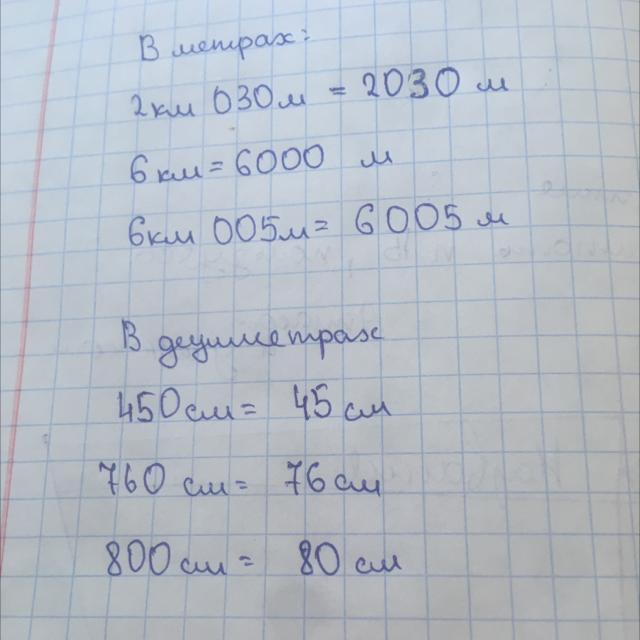 В метрах:
2км 030м = 2030 м
6 км = 6000 м
6км 005м = 6005 м
В дециметрах
450см = 45 см
760 см = 76 см
800 см = 80 см